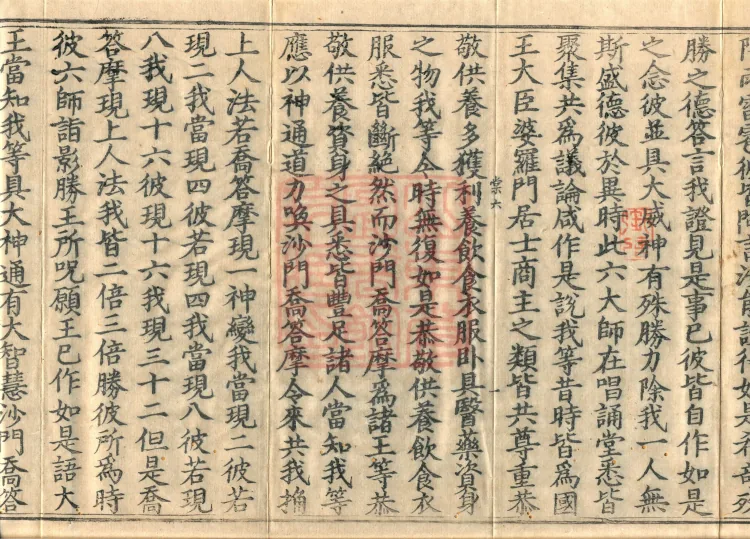 勝之德答言我證見是事已彼皆自作如是
之念彼並具大威神有殊勝力除我一人無
斯盛德彼於異時此六大師在唱誦堂悉皆
聚集共爲議論咸作是說我等昔時皆爲國
王大臣婆羅門居士商主之類皆共尊重恭
敬供養多獲利養飲食衣服卧具醫藥資身
之物我等今時無復如是恭敬供養飲食衣
服悉皆斷絕然而沙門喬答摩爲諸王等恭
敬供養資身之具悉皆豐足諸人當知我等
應以神通道力喚沙門喬答摩令來共我捔
上人法若喬答摩現一神變我當現二彼若
現二我當現四彼若現四我當現八彼若現
八我現十六彼現十六我現三十二但是喬
答摩現上人法我皆二倍三倍勝彼所爲時
彼六師詣影勝王所呪願王已作如是語大
王當知我等具大神通有大智慧沙門喬答